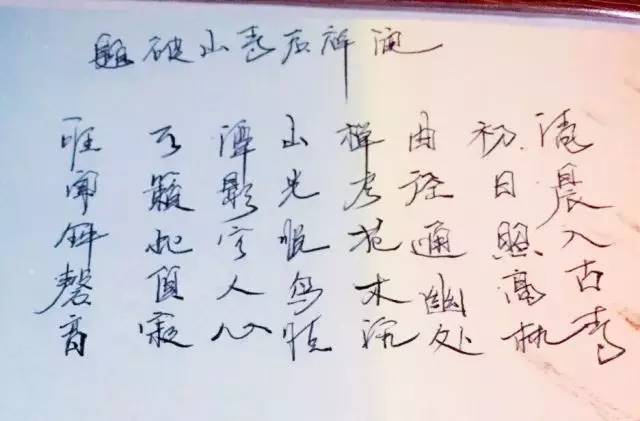 题破山寺后禅院
清晨入古寺
初日照高林
曲径通幽处
禅房花木深
山光悦鸟性
潭影空人心
万籁此俱寂
唯闻钟磬音